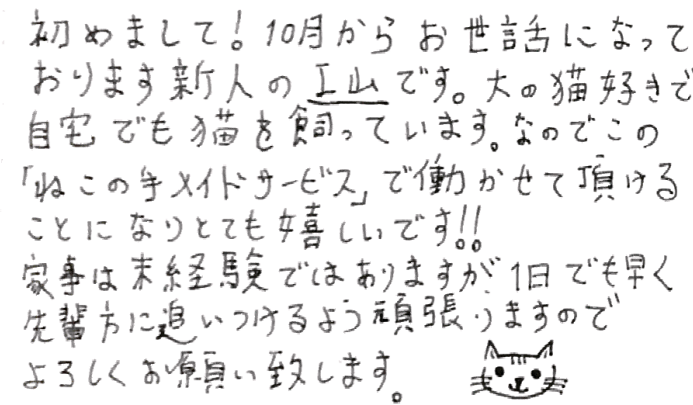 初めまして！10月からお世話になって
おります新人の工山です。大の猫好きで
自宅でも猫を飼っています。なのでこの
「ねこの手メイドサービス」で働かせて頂ける
ことになりとても嬉しいです!!
家事は末経験ではありますが、1日でも早く
先輩方に追いつけるよう頑張りますので
よろしくお願い致します。